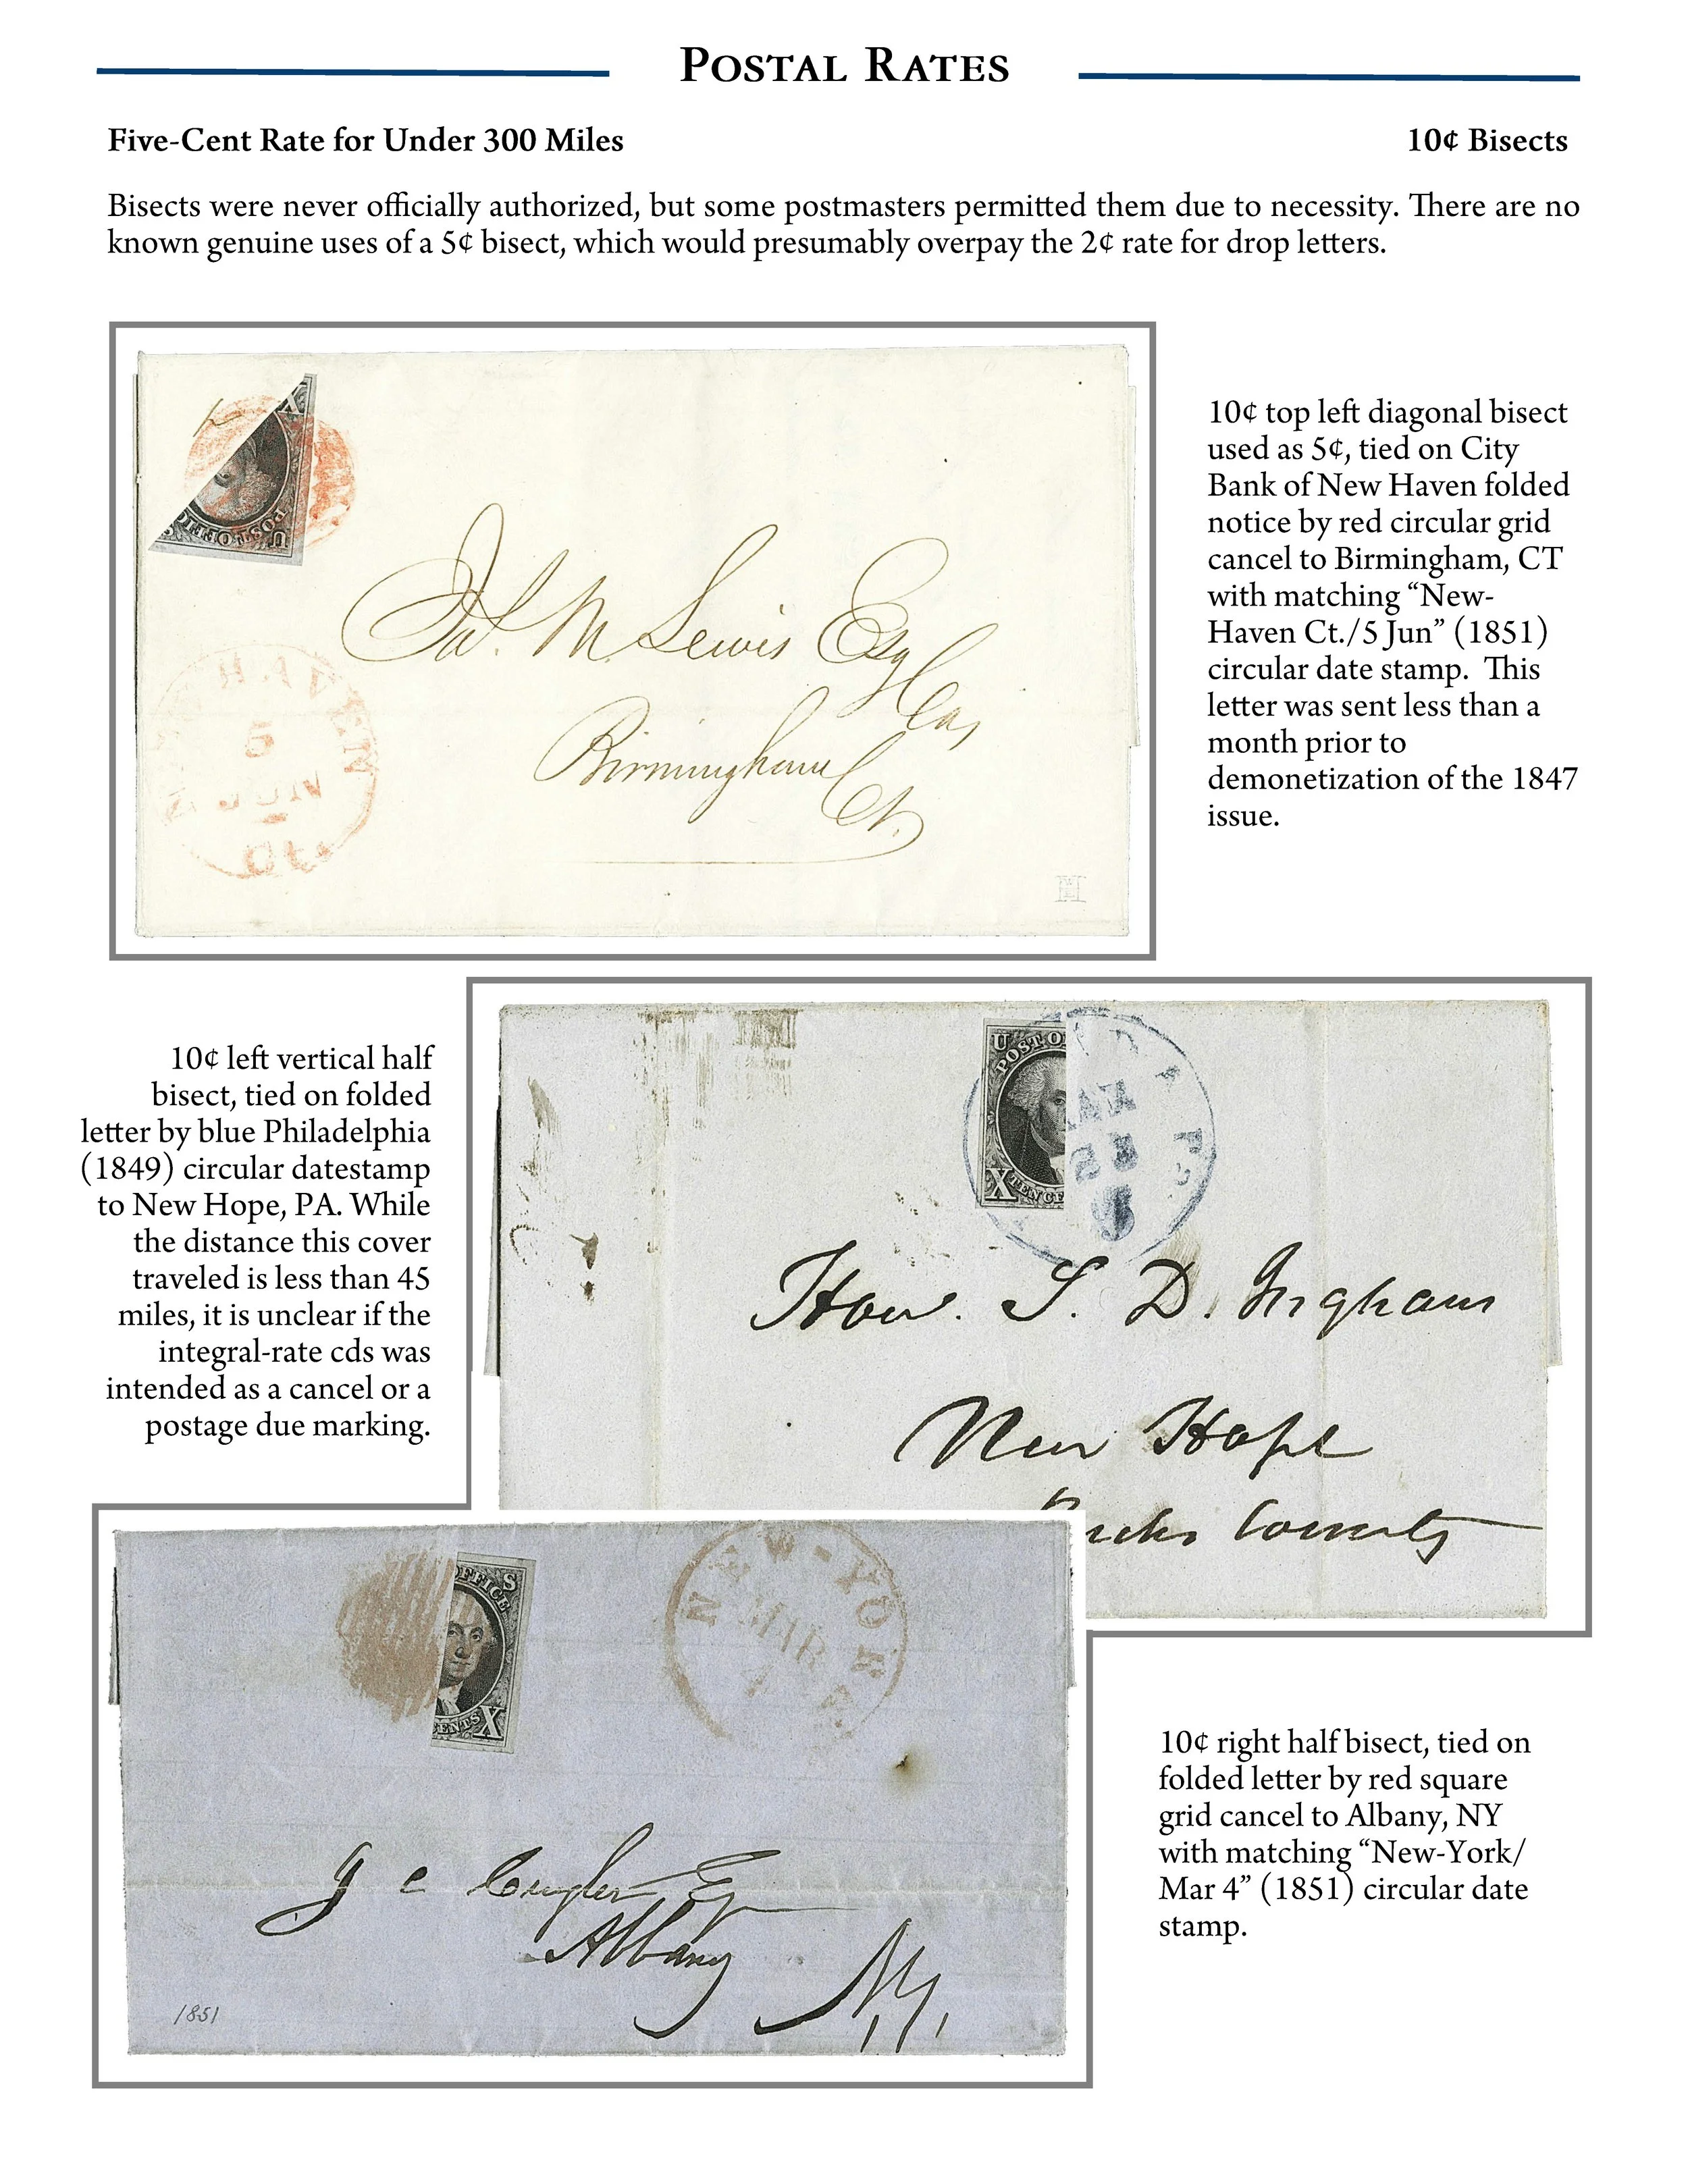 Postal Rates
Five-Cent Rate for Under 300 Miles
10¢ Bisects
Bisects were never officially authorized, but some postmasters permitted them due to necessity. There are no
known genuine uses of a 5¢ bisect, which would presumably overpay the 2¢ rate for drop letters.
X
POST OFFIC
U
HAVEN
5
JUN
Ct.
M. Lewis Esq
Birmingham
Ct.
10¢ top left diagonal bisect
used as 5¢, tied on City
Bank of New Haven folded
notice by red circular grid
cancel to Birmingham, CT
with matching “New-
Haven Ct./5 Jun” (1851)
circular date stamp. This
letter was sent less than a
month prior to
demonetization of the 1847
issue.
10¢ left vertical half
bisect, tied on folded
letter by blue Philadelphia
(1849) circular datestamp
to New Hope, PA. While
the distance this cover
traveled is less than 45
miles, it is unclear if the
integral-rate cds was
intended as a cancel or a
postage due marking.
U
POST O
X
TEN CE
Hon. S. D. Ingham
New Hope
Bucks County
OFFICE
S
CENTS
X
NEW-YORK
MAR
4
J C
Esq
Albany
N.Y.
1851
10¢ right half bisect, tied on
folded letter by red square
grid cancel to Albany, NY
with matching “New-York/
Mar 4” (1851) circular date
stamp.